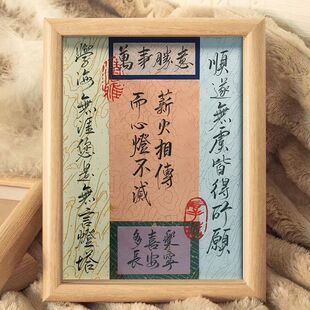 萬事勝意
順遂無虞皆得所願
薪火相傳
而心燈不滅
學海無涯您是無言燈塔
多喜樂
長安寧